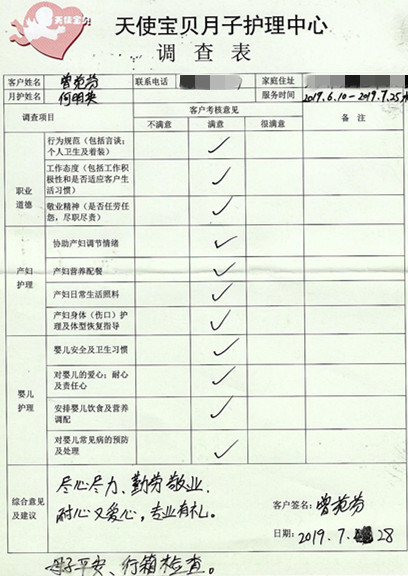 天使宝贝
天使宝贝月子护理中心
调查表
客户姓名 曾苑芬 联系电话 家庭住址
月护姓名 何明英 服务时间 2019.6.10-2019.7.25
调查项目 客户考核意见 备 注
不满意 满意 很满意
职业道德
行为规范（包括言谈；
个人卫生及着装） ✓
工作态度（包括工作积
极性和是否适应客户生
活习惯） ✓
敬业精神（是否任劳任
怨，尽职尽责） ✓
产妇护理
协助产妇调节情绪 ✓
产妇营养配餐 ✓
产妇日常生活照料 ✓
产妇身体（伤口）护
理及体型恢复指导 ✓
婴儿护理
婴儿安全及卫生习惯 ✓
对婴儿的爱心；耐心
及责任心 ✓
安排婴儿饮食及营养
调配 ✓
对婴儿常见病的预防
及处理 ✓
综合意见
及建议
尽心尽力、勤劳敬业.
耐心又爱心，专业有礼。
客户签名：曾苑芬
日期：2019.7.28
母子平安、行箱检查。